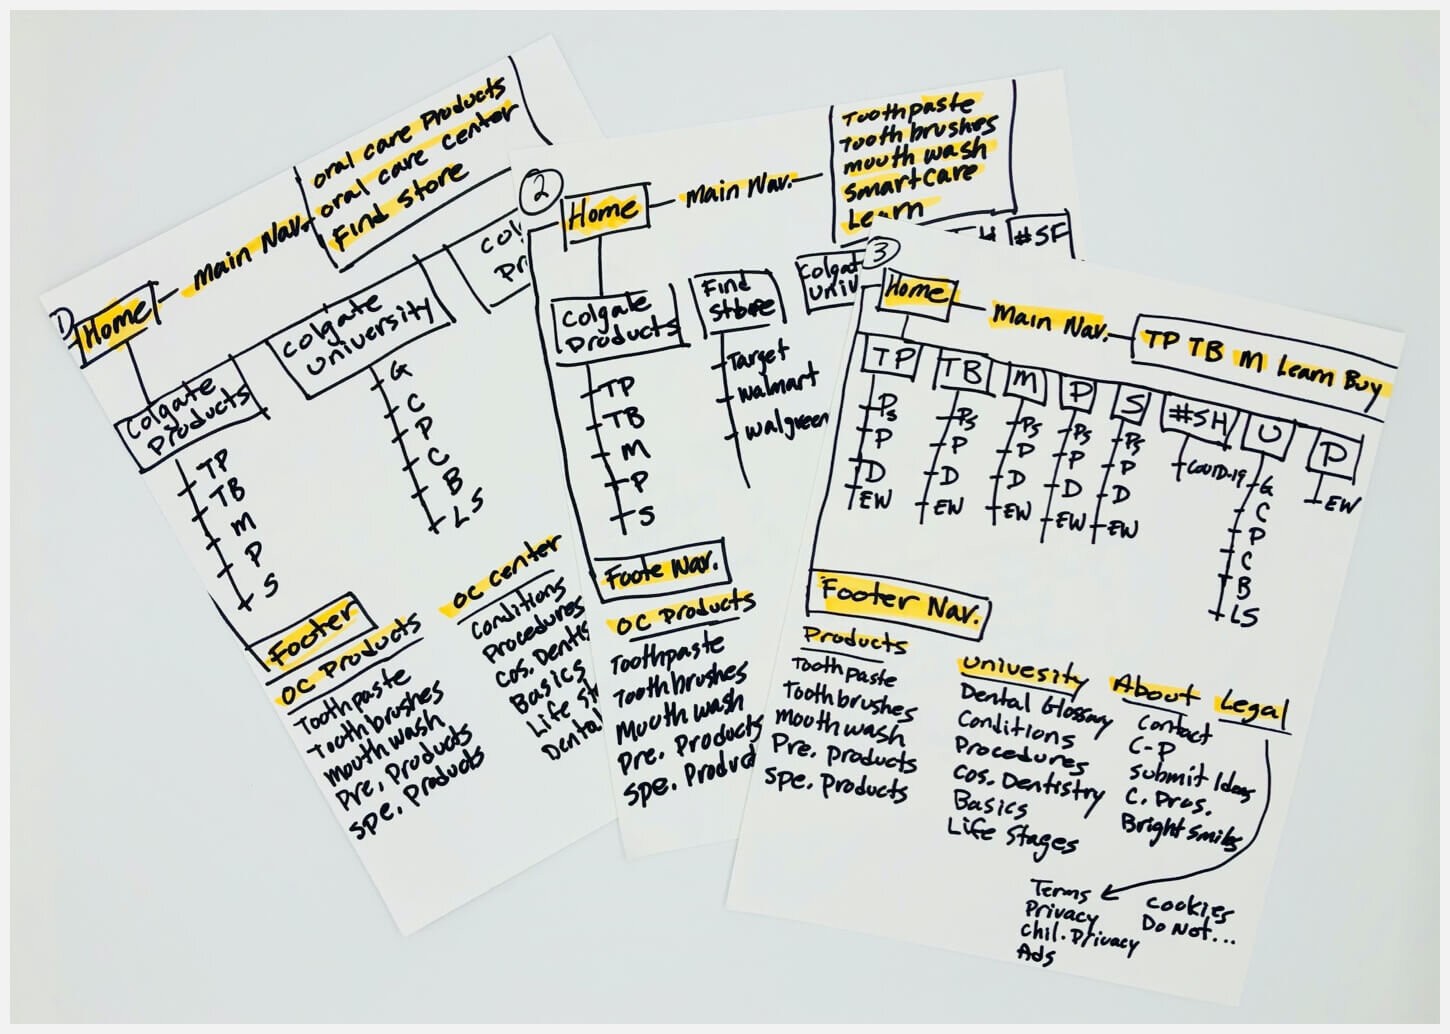 1
Home
Main Nav.
oral care Products
oral care center
Find Store
Colgate
Products
TP
TB
M
P
S
Colgate
university
G
C
P
C
B
LS
Footer
OC Products
Toothpaste
Toothbrushes
mouthwash
Pre. Products
Spe. Products
OC Center
Conditions
Procedures
Cos.
Basics
Life
2
Home
Main Nav.
Toothpaste
Tooth brushes
mouth wash
Smart care
Learn
Colgate
Products
TP
TB
M
P
S
Find
Store
Target
walmart
walgreen
#SF
Foote Nav.
OC Products
Toothpaste
Toothbrushes
Mouthwash
Pre. Products
Spe.
3
Home
Main Nav.
TP TB M Learn Buy
TP
Ps
P
D
EW
TB
Ps
P
D
EW
M
Ps
P
D
EW
P
Ps
P
D
EW
S
Ps
P
D
EW
#SH
COVID-19
U
G
C
P
C
B
LS
P
EW
Footer Nav.
Products
Toothpaste
Toothbrushes
mouthwash
Pre. Products
Spe. Products
Univesity
Dental Glossary
Conditions
Procedures
Cos. Dentistry
Basics
Life Stages
About
Contact
C-P
Submit Ideas
C. Pros.
Bright Smiles
Legal
Terms
Privacy
Chil. Privacy
Ads
Cookies
Do Not...